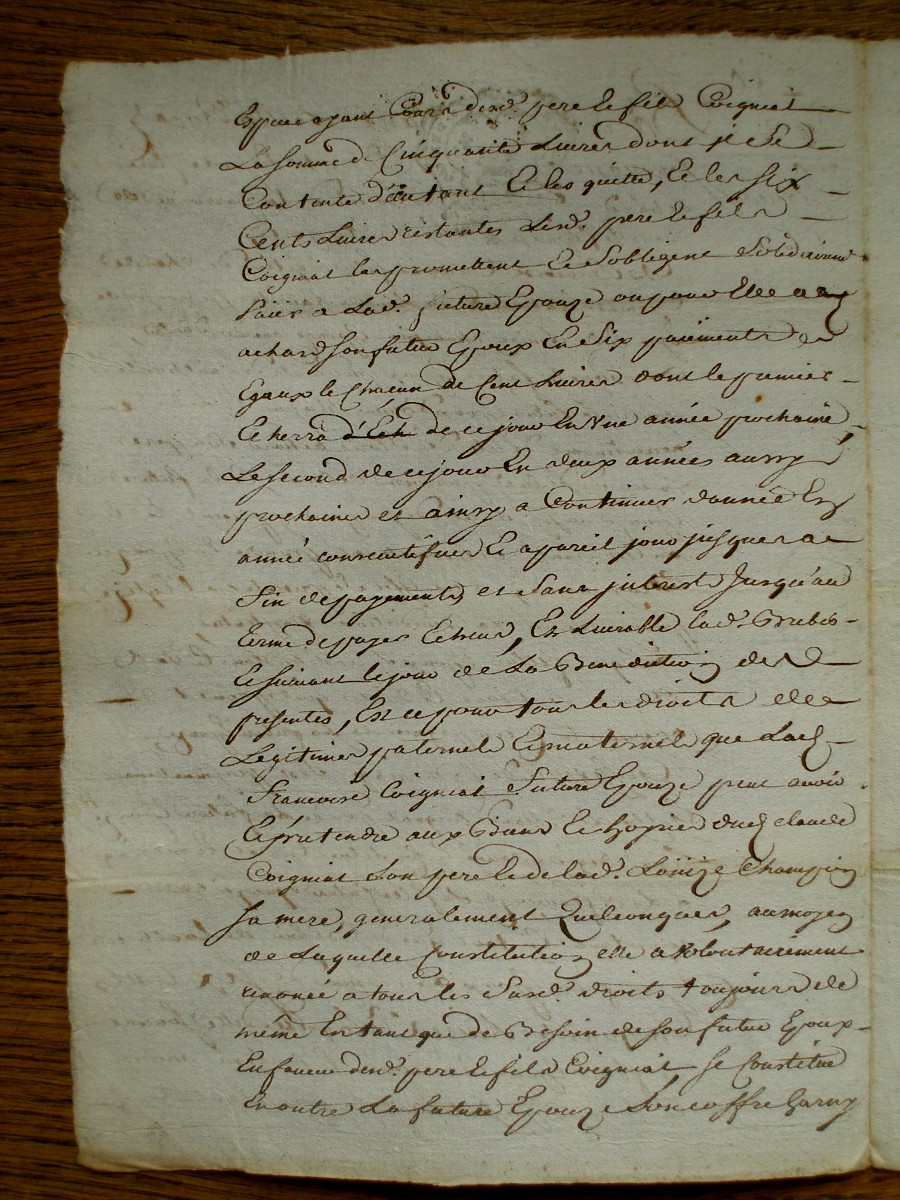 Espece ayant Cour desd. pere Et fils Coigniat
La somme de Cinquante Livres dont il se
Contente d'autant Et les quitte, Et les six
Cents Livres restantes Lesd. pere Et fils
Coigniat les promettent Et S'obligent Solidairemt
Paier a Lad. future Epouze ou pour Elle and
achard son futur Epoux En Six paiements
Egaux le Chacun de Cent Livres dont le premier
Echerra d'Ech de ce jour En Une année prochaine
Le second de ce jour En deux années aussy
prochaines et ainsy a Continuer d'année En
année consecutifves Et a pareil jour jusques a
fin de payements et Sans interest Jusqu'au
terme de payes Echeus, Et Livrable lad. Brebis
Et suivant le jour de La Benediction des
presentes, Et ce pour tous les droits de
Legitimes paternel Et maternel que Lad.
Francoise Coigniat future Epouze peut avoir
Et pretendre aux Biens Et hoyries dud. claude
Coigniat son pere Et de lad. Loüize Champion
Sa mere, generalement Quelconques, au moyen
de Laquelle Constitution elle a Volontairement
renoncé a tous les Susd. droits toujours de
même En tant que de Besoin de son futur Epoux
En faveur desd. pere Et fils Coigniat, Se Constitue
En outre La future Epouze Son coffre Garny